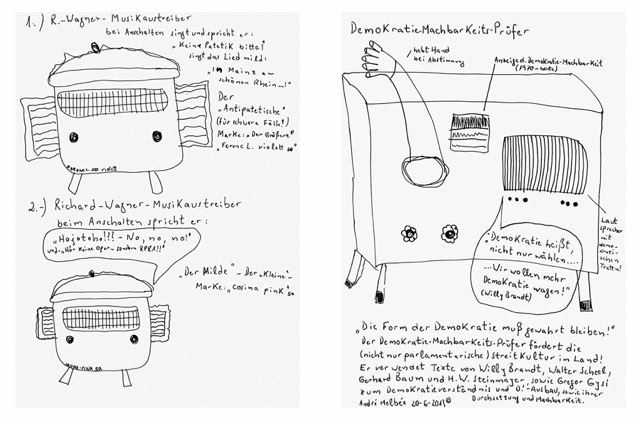 1.) R.-Wagner-Musikaustreiber
bei Anschalten singt und spricht er:
"Keine Patetik bitte!
singt das Lied mild:
"In Mainz am
schönen Rheinn!"
Der
"Antipatetische"
(für schwere Fälle!)
Marke: "Der Größere"
"Ferenc L. violett 50"
2.-) Richard-Wagner-Musikaustreiber
beim Anschalten spricht er:
"Hojotoho!?? - No, no, no!"
"Der Milde" - Der "Kleine"
Marke: "cosima pink" 50
Demokratie-Machbarkeits-Prüfer
hebt Hand
bei Abstimung
Anzeige d. Demokratie-Machbarkeit
(1970-heute)
Laut
sprecher
mit
demo-
krati-
schen
Texten!
"Demokratie heißt,
nicht nur wählen....
...Wir wollen mehr
Demokratie wagen!"
(Willy Brandt)
"Die Form der Demokratie muß gewahrt bleiben!"
Der Demokratie-Machbarkeits-Prüfer fördert die
(nicht nur parlamentarische) Streitkultur im Land!
Er verwendet Texte von Willy Brandt, Walter Scheel,
Gerhard Baum und H.W. Steinmayer, sowie Gregor Gysi
zum Demokratieverständnis und D.-Ausbau, sowie ihrer
André Melbée 20-6-2017 © Durchsetzung und Machbarkeit.